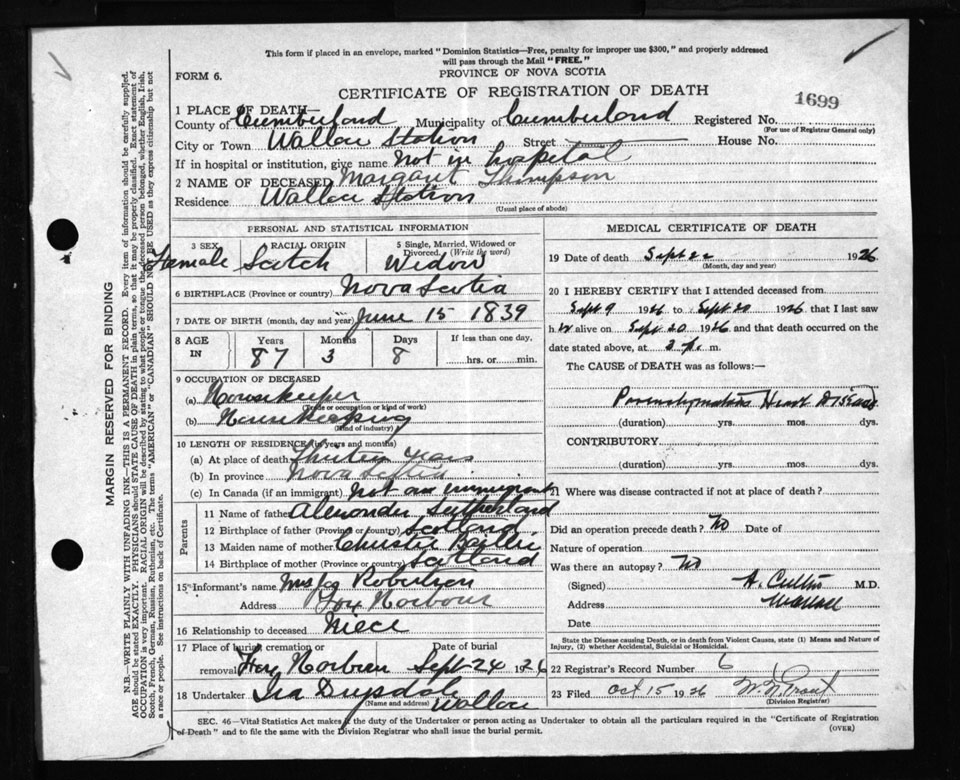 This form if placed in an envelope, marked "Dominion Statistics—Free, penalty for improper use $300," and properly addressed
will pass through the Mail "FREE."
FORM 6.
PROVINCE OF NOVA SCOTIA
CERTIFICATE OF REGISTRATION OF DEATH
1699
1 PLACE OF DEATH—
County of Cumberland Municipality of Cumberland Registered No.
(For use of Registrar General only)
City or Town Wallace Station Street House No.
If in hospital or institution, give name Not in hospital
2 NAME OF DECEASED Margaret Thompson
Residence Wallace Station
(Usual place of abode)
PERSONAL AND STATISTICAL INFORMATION
3 SEX RACIAL ORIGIN 5 Single, Married, Widowed or Divorced. (Write the word)
Female Scotch Widow
6 BIRTHPLACE (Province or country) Nova Scotia
7 DATE OF BIRTH (month, day and year) June 15 1839
8 AGE IN Years Months Days If less than one day,
87 3 8 hrs. or min.
9 OCCUPATION OF DECEASED
(a) Housekeeper
(Trade or occupation or kind of work)
(b) Housekeeping
(Kind of industry)
10 LENGTH OF RESIDENCE (in years and months)
(a) At place of death Thirty years
(b) In province Nova Scotia
(c) In Canada (if an immigrant) Not an immigrant
Parents
11 Name of father Alexander Sutherland
12 Birthplace of father (Province or country) Scotland
13 Maiden name of mother Christie Baillie
14 Birthplace of mother (Province or country) Scotland
15 Informant's name Mrs Robertson
Address Fox Harbour
16 Relationship to deceased Niece
17 Place of burial, cremation or removal Date of burial
Fox Harbour Sept 24 1926
18 Undertaker Ira Drysdale
(Name and address) Wallace
MEDICAL CERTIFICATE OF DEATH
19 Date of death Sept 22 1926
(Month, day and year)
20 I HEREBY CERTIFY that I attended deceased from
Sept 9 1926 to Sept 20 1926 that I last saw
her alive on Sept 20 1926 and that death occurred on the
date stated above, at 3 p. m.
The CAUSE of DEATH was as follows:—
Heart Disease
(duration) yrs. mos. dys.
CONTRIBUTORY
(duration) yrs. mos. dys.
21 Where was disease contracted if not at place of death?
Did an operation precede death? No Date of
Nature of operation
Was there an autopsy? No
(Signed) A. M.D.
Address Wallace
Date
State the Disease causing Death, or in death from Violent Causes, state (1) Means and Nature of
Injury, (2) whether Accidental, Suicidal or Homicidal.
22 Registrar's Record Number 6
23 Filed Oct 15 1926
(Division Registrar)
SEC. 46—Vital Statistics Act makes it the duty of the Undertaker or person acting as Undertaker to obtain all the particulars required in the "Certificate of Registration
of Death" and to file the same with the Division Registrar who shall issue the burial permit.
(OVER)
MARGIN RESERVED FOR BINDING
N.B.—WRITE PLAINLY WITH UNFADING INK—THIS IS A PERMANENT RECORD. Every item of information should be carefully supplied.
AGE should be stated EXACTLY. PHYSICIANS should STATE CAUSE OF DEATH in plain terms, so that it may be properly classified. Exact statement of
OCCUPATION is very important. RACIAL ORIGIN will be described by stating to what people or tongue the deceased person belonged, whether English, Irish,
Scotch, French, German, Russian, Ruthenian, etc. The terms "AMERICAN" or "CANADIAN" SHOULD NOT BE USED as they express citizenship but not
a race or people. See instructions on back of Certificate.